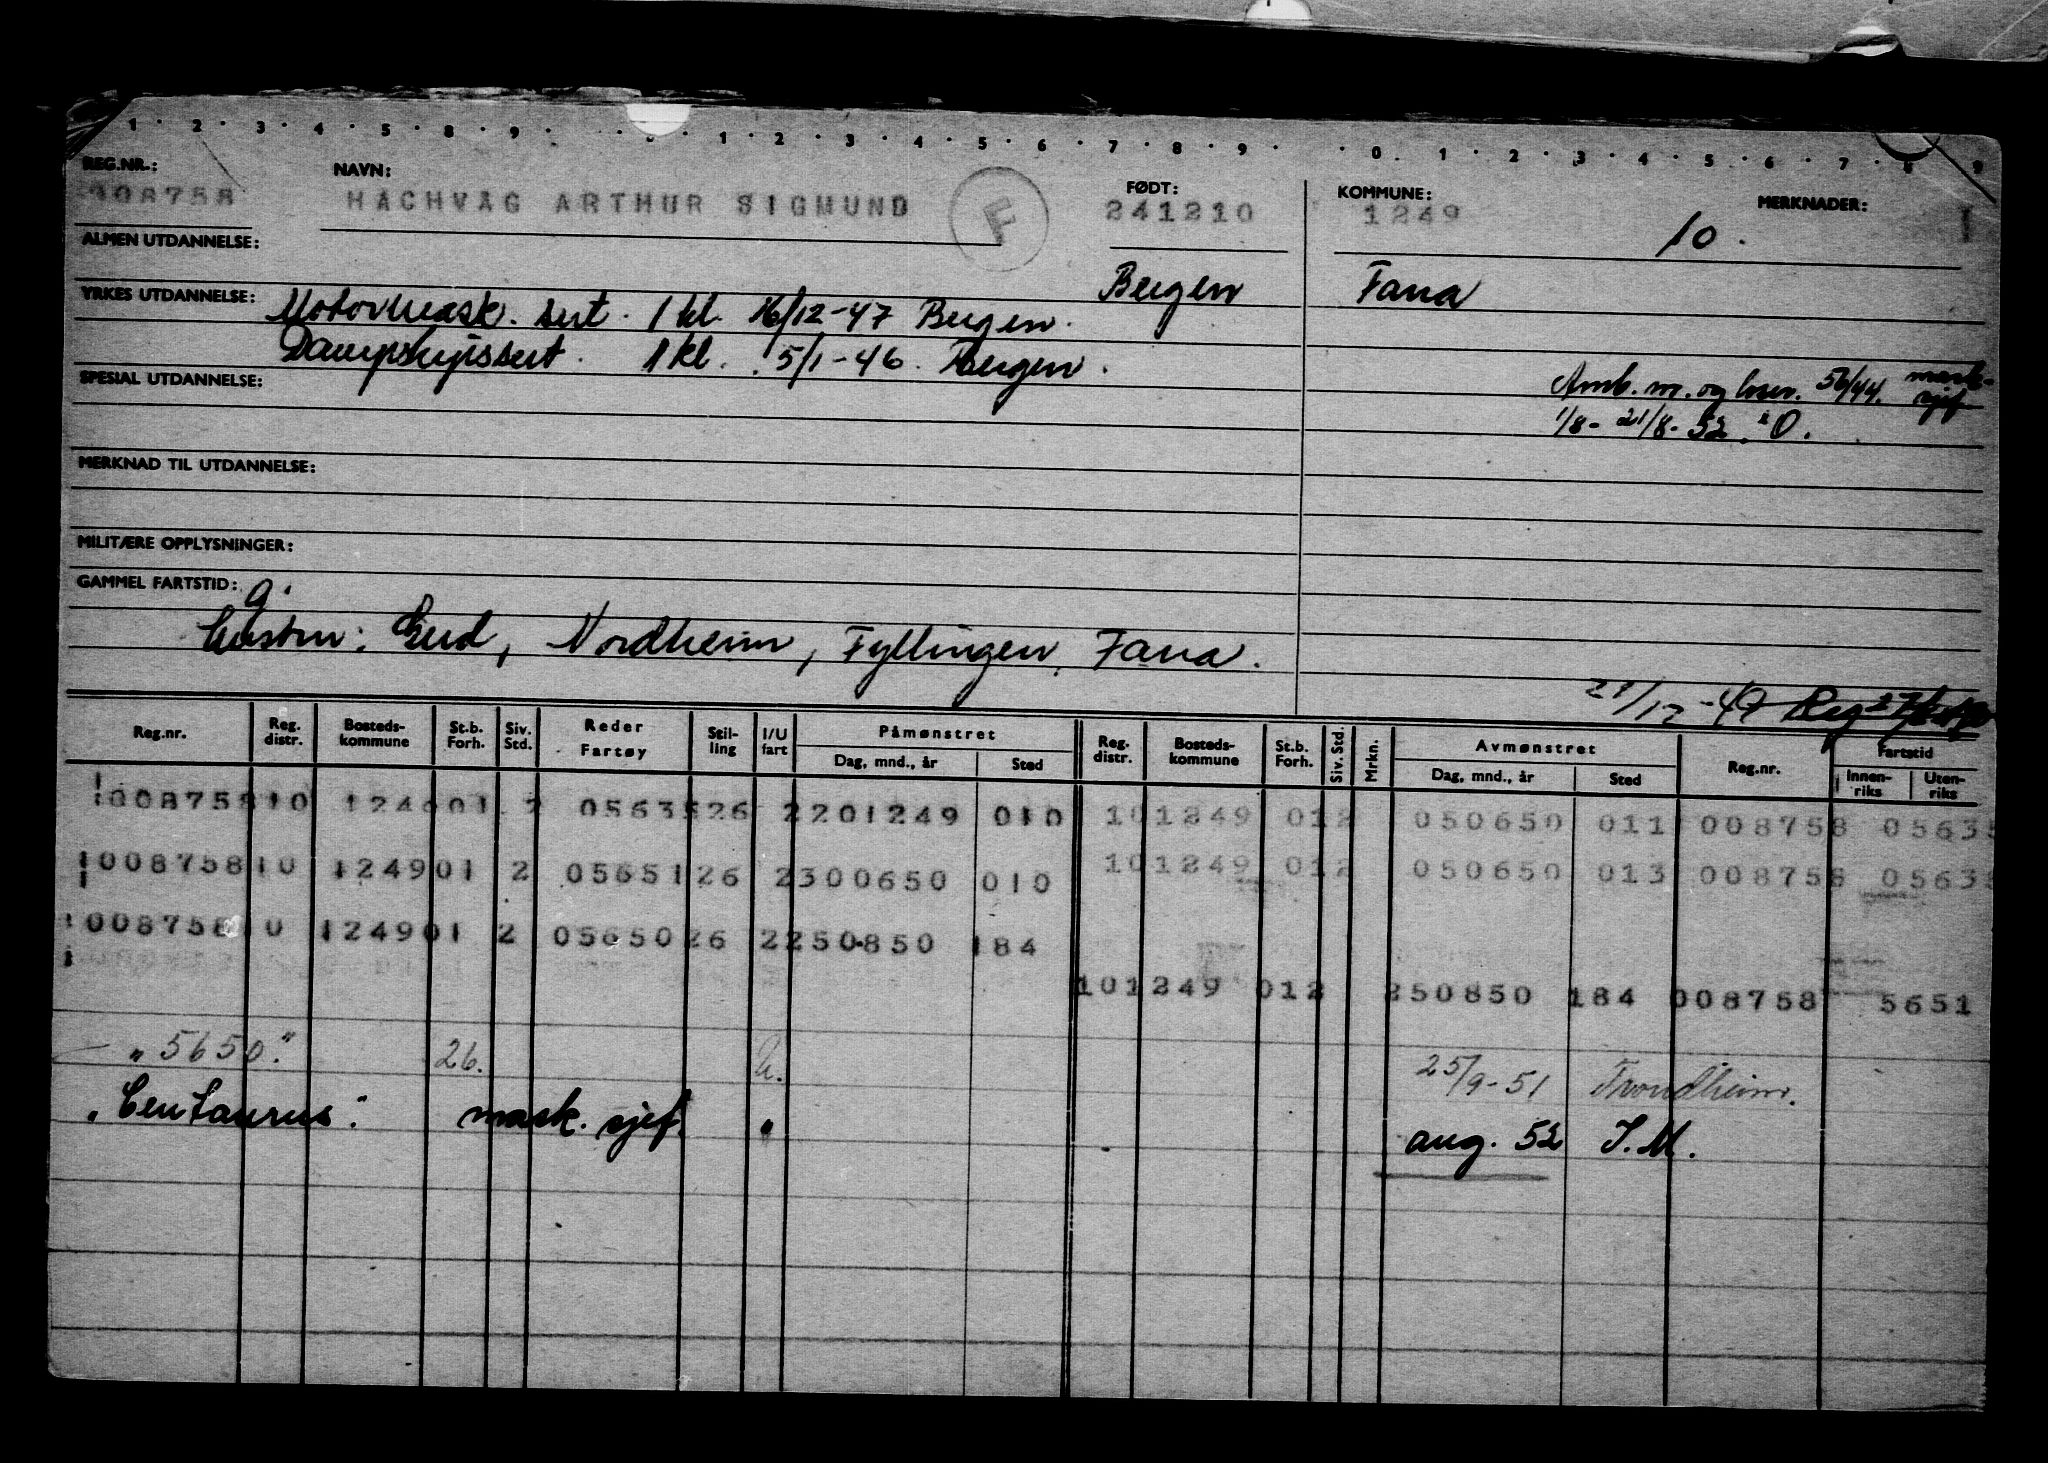 1 · 2 · 3 · 4 · 5 · 8 · 9 · 1 · 2 · 3 · 4 · 5 · 6 · 7 · 8 · 9 · 0 · 1 · 2 · 3 · 4 · 5 · 6 · 7 · 8 · 9
REG.NR.: NAVN: FØDT: KOMMUNE: MERKNADER:
008758 HACHVAG ARTHUR SIGMUND F 241210 1249
10.
ALMEN UTDANNELSE:
Bergen Fana
YRKES UTDANNELSE: Motormask. sert. 1 kl. 16/12-47 Bergen.
Dampskipssert. 1 kl. 5/1-46 Bergen.
SPESIAL UTDANNELSE:
Amb. m. og insv. 56/44. mask. sjef
1/8 - 21/8 - 52. "O.
MERKNAD TIL UTDANNELSE:
MILITÆRE OPPLYSNINGER:
GAMMEL FARTSTID:
g.
Hustru: Gud, Nordheim, Fyllingen, Fana.
21/12-49 Reg
Reg.nr. Reg. distr. Bosteds-kommune St.b. Forh. Siv. Std. Reder Fartøy Stil-ling I/U fart Påmønstret Dag, mnd., år Sted Reg. distr. Bosteds-kommune St.b. Forh. Siv. Std. Mrkn. Avmønstret Dag, mnd., år Sted Reg.nr. Fartstid Innen-riks Uten-riks
008758 10 1249 01 2 05635 26 2 201249 010 10 1249 01 2 050650 011 008758 05635
008758 10 1249 01 2 05651 26 2 300650 010 10 1249 01 2 050650 013 008758 05635
008758 10 1249 01 2 05650 26 2 250850 184
10 1249 01 2 250850 184 008758 5651
"5650." 26. U. 25/9-51 Trondheim.
"Centaurus". mask. sjef. " aug. 52 I.M.